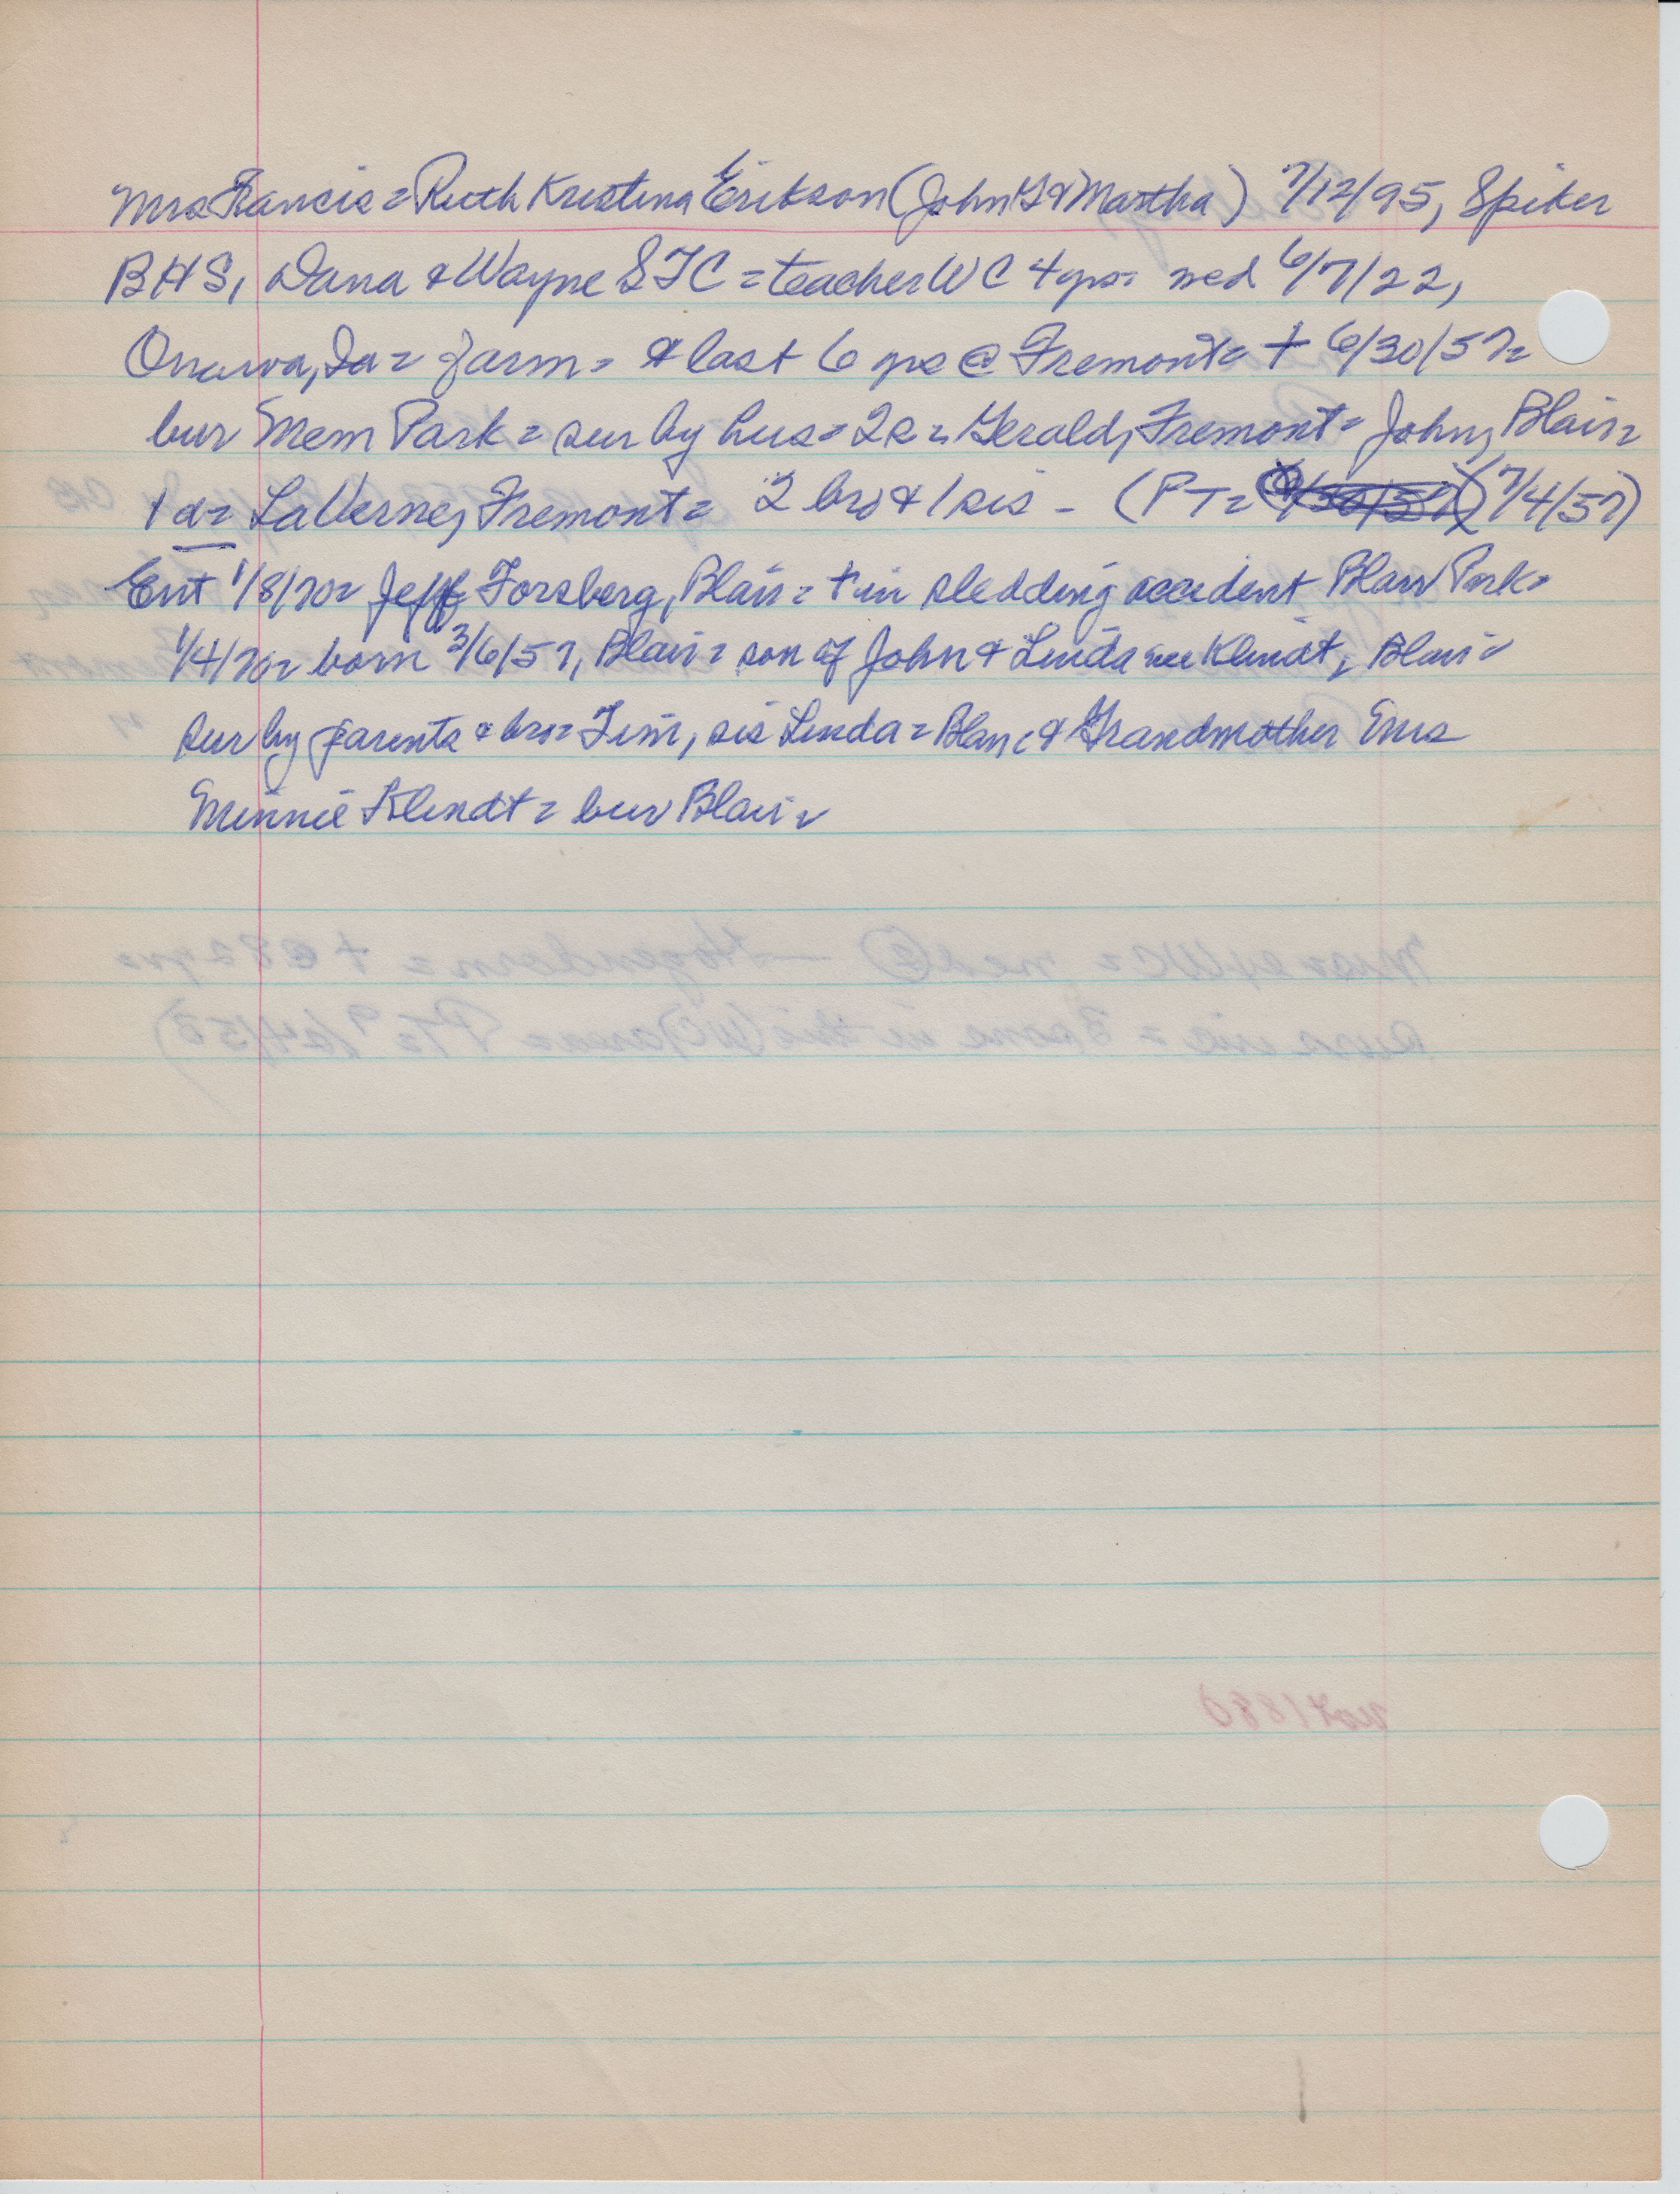 Mrs Francis = Ruth Kristina Erikson (John G & Martha) 7/12/95, Spiker
BHS, Dana & Wayne STC = teacher WC 4 yrs = med 6/7/22,
Onawa, Ia = farm = & last 6 yrs @ Fremont = + 6/30/57 =
bur Mem Park = sur by hus = 2s = Gerald, Fremont = John, Blair =
1 d = LaVerne, Fremont = 2 bro & 1 sis - (PT = 7/4/57)
Ent 1/8/70 = Jeff Forsberg, Blair = + in sledding accident Blair Park =
1/4/70 = born 3/6/57, Blair = son of John & Linda nee Klindt, Blair =
sur by parents & bro = Tim, sis Linda = Blair & Grandmother Mrs
Minnie Klindt = bur Blair =